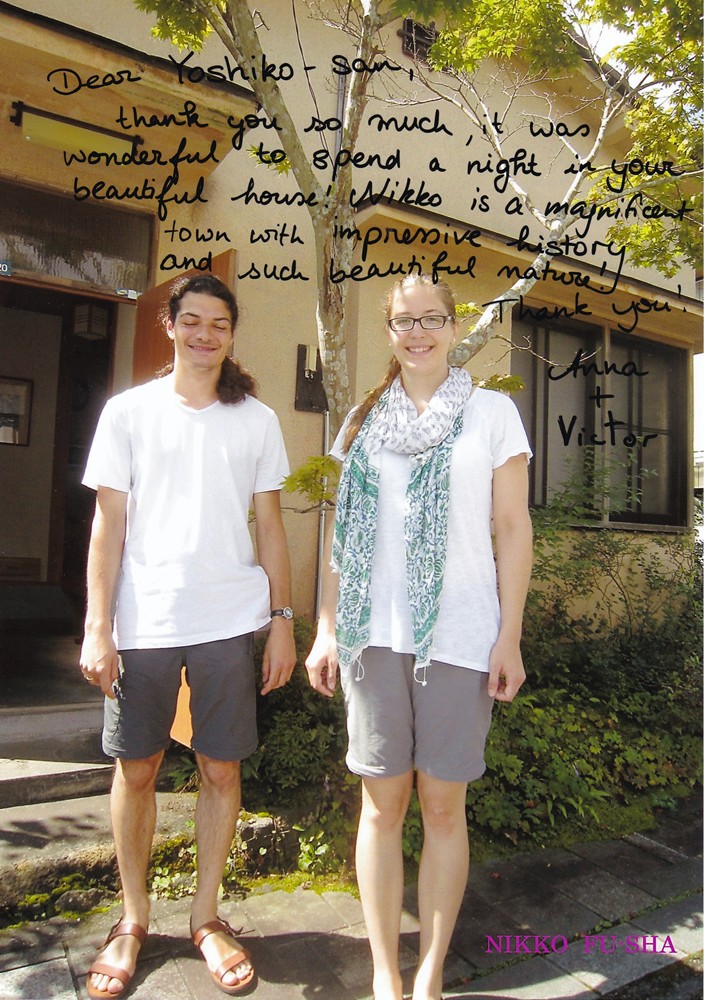 Dear Yoshiko-San,
thank you so much, it was
wonderful to spend a night in your
beautiful house! Nikko is a magnificent
town with impressive history
and such beautiful nature!
Thank you!
Anna
+
Victor
20
NIKKO FU-SHA